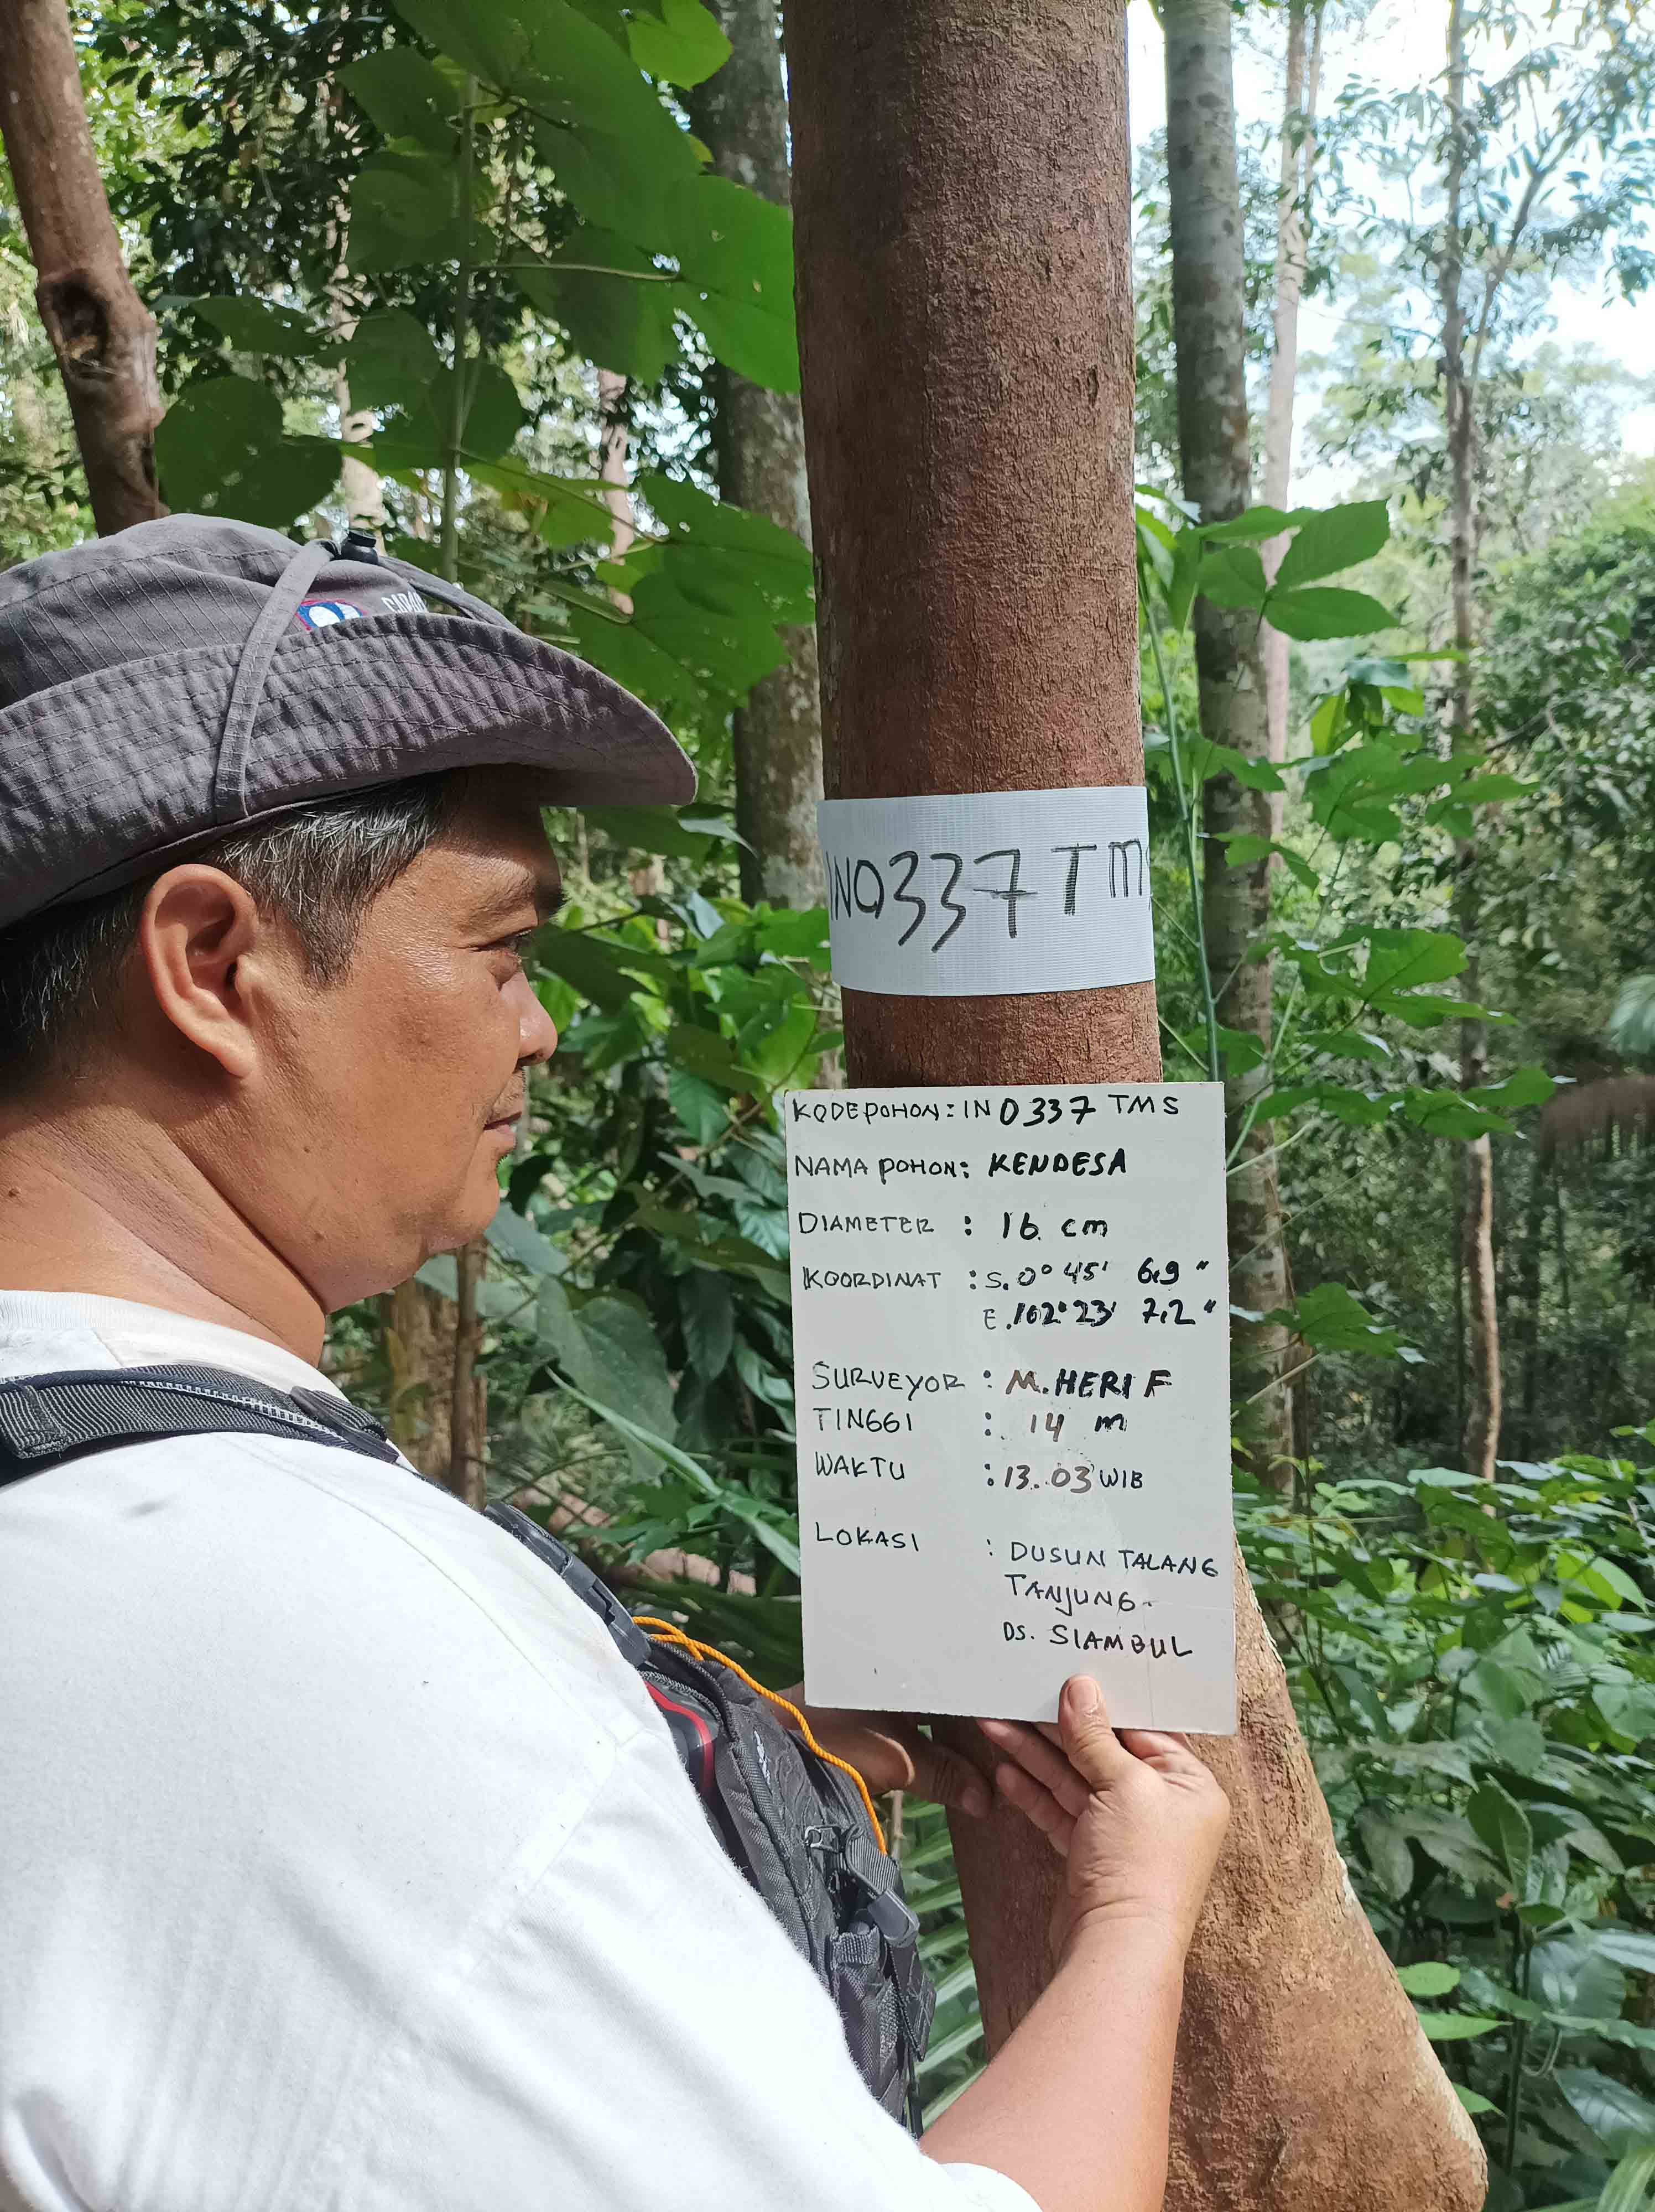 IN0337 TMS
KODE POHON : IN 0337 TMS
NAMA POHON : KENDESA
DIAMETER : 16 cm
KOORDINAT : S. 0° 45' 6,9 "
E. 102° 23' 7,2 "
SURVEYOR : M. HERI F
TINGGI : 14 m
WAKTU : 13.03 WIB
LOKASI : DUSUN TALANG
TANJUNG -
DS. SIAMBUL